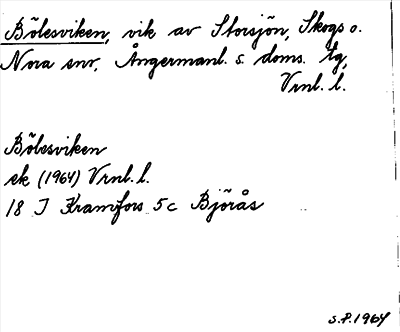 Bölesviken, vik av Storsjön, Skogs o.
Nora snr, Ångermanl. s. doms. tg,
Vrnl. l.
Bölesviken
ek (1964) Vrnl. l.
18 J Kramfors 5 c Björås
S.P. 1964